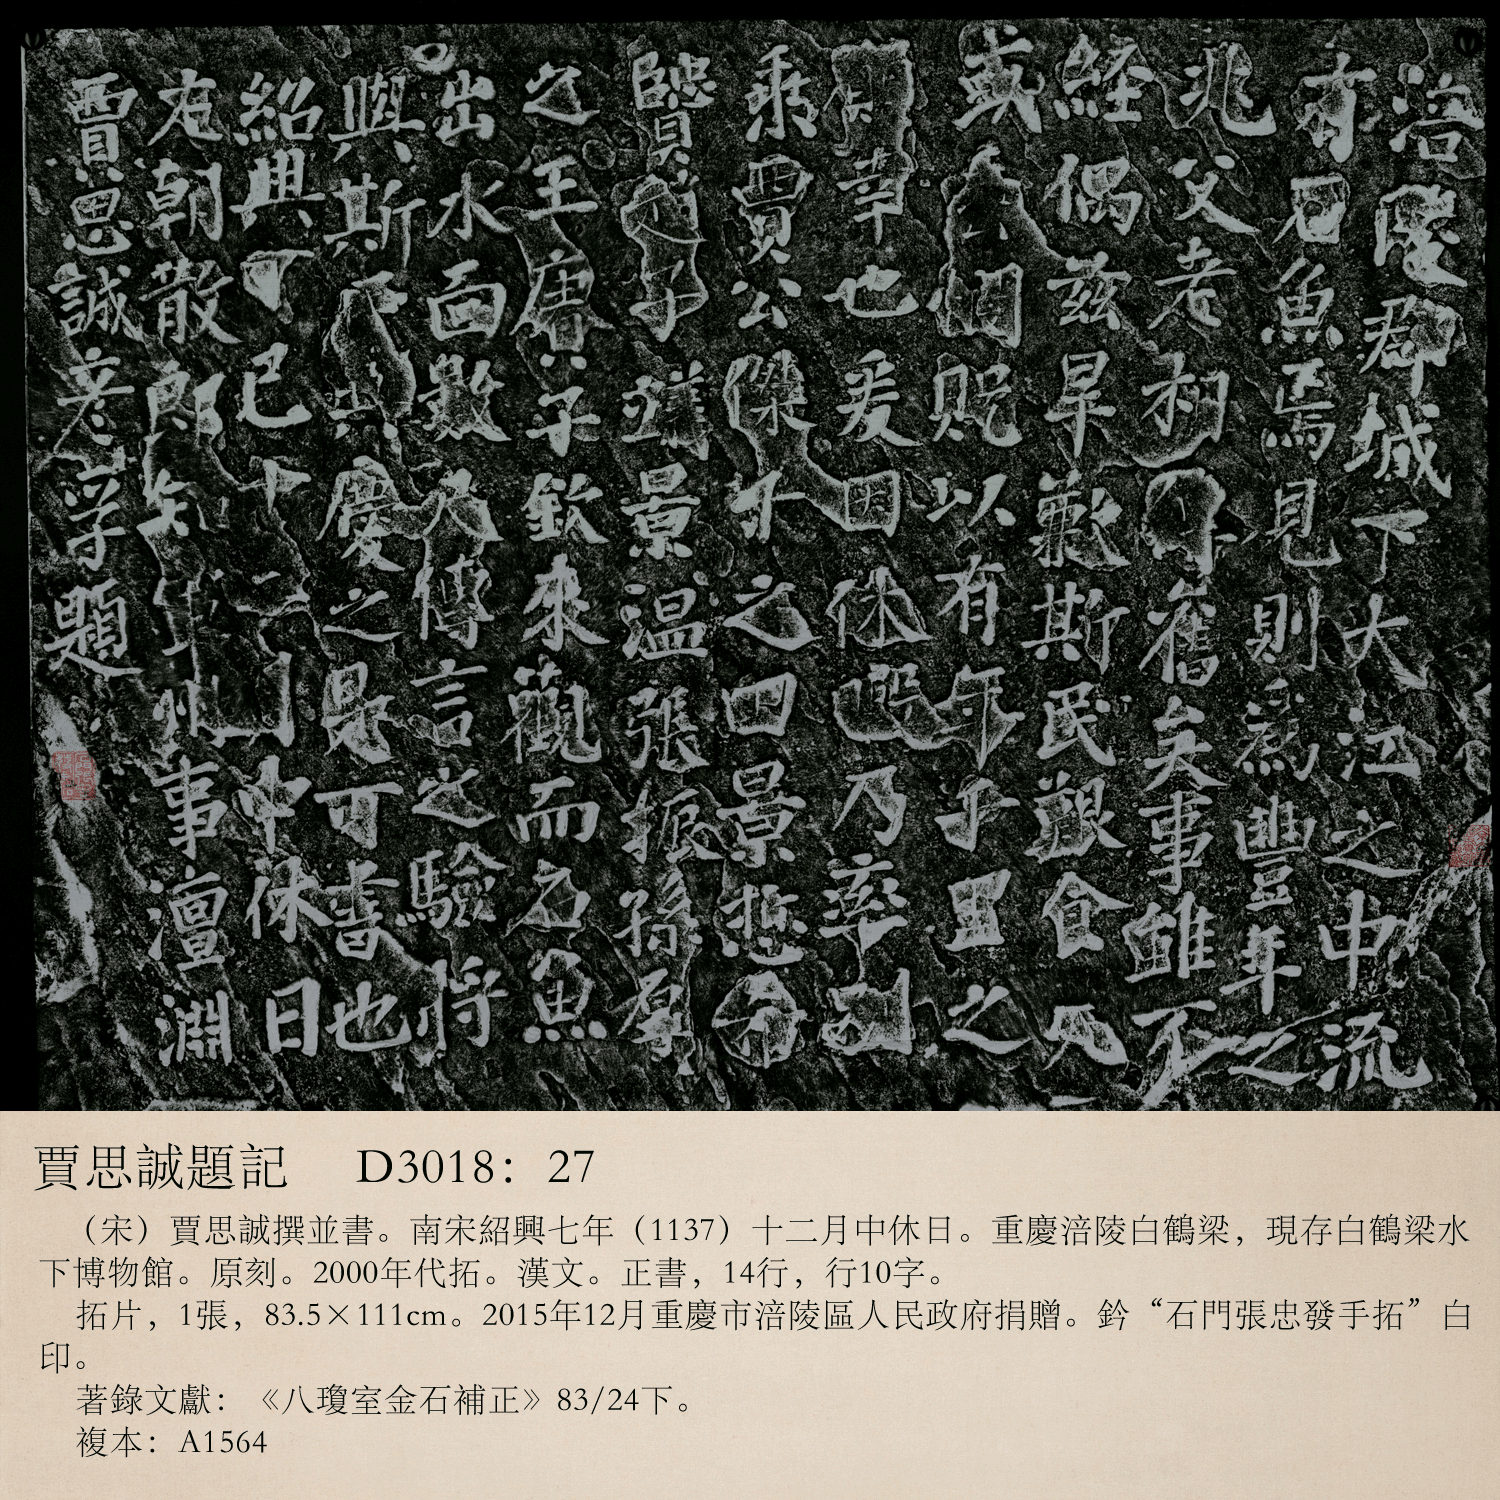 涪陵郡城下大江之中流
有石魚焉見則爲豐年之
兆父老相舊矣事雖不
経偶兹旱歉斯民艱食凡
或貺以有年乎里之
幸也爰因休暇乃率別
乘賈公傑千之田景悊希
賢子景温張振孫厚
之王康子欽來觀而石魚
出水面數尺傳言之驗將
與斯共慶之是可書也
紹興丁巳十二月中休日
左朝散郎知軍州事澶淵
賈思誠彦孚題
賈思誠題記 D3018：27
（宋）賈思誠撰並書。南宋紹興七年（1137）十二月中休日。重慶涪陵白鶴梁，現存白鶴梁水
下博物館。原刻。2000年代拓。漢文。正書，14行，行10字。
拓片，1張，83.5×111cm。2015年12月重慶市涪陵區人民政府捐贈。鈐“石門張忠發手拓”白
印。
著錄文獻：《八瓊室金石補正》83/24下。
複本：A1564